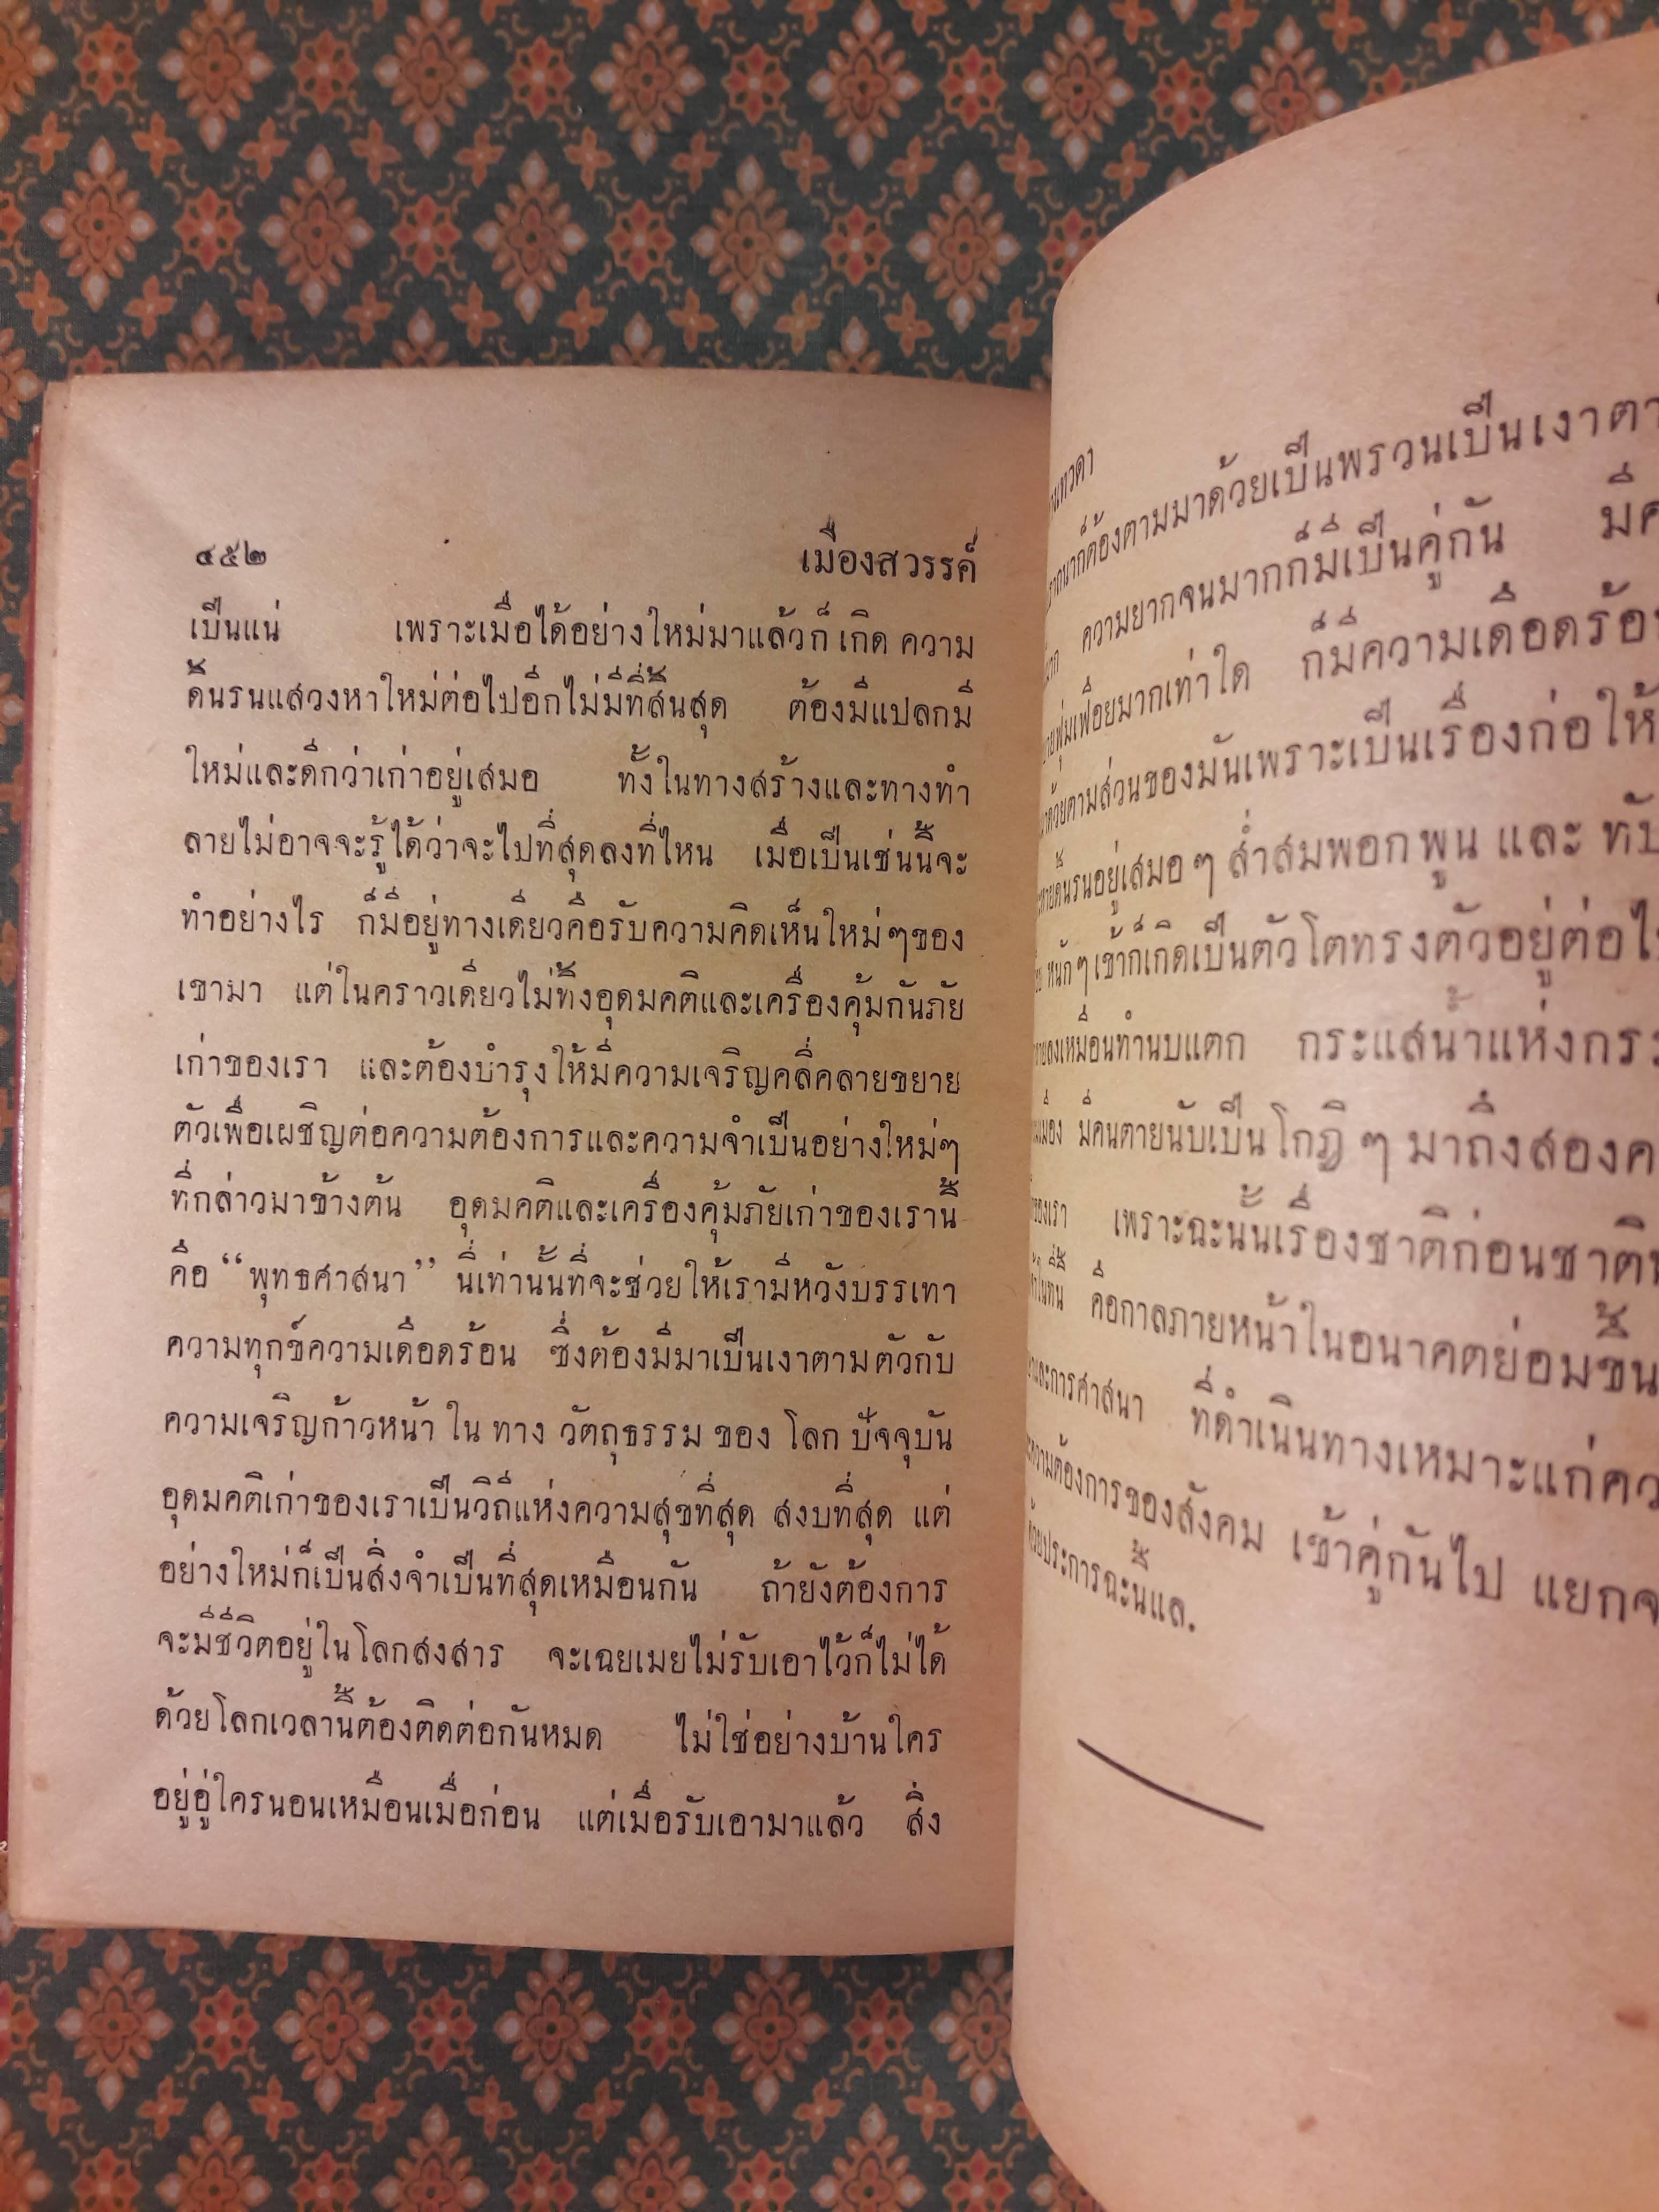 ๔๕๒ เมืองสวรรค์
เป็นแน่ เพราะเมื่อได้อย่างใหม่มาแล้วก็ เกิด ความ
ดิ้นรนแสวงหาใหม่ต่อไปอีกไม่มีที่สิ้นสุด ต้องมีแปลกมี
ใหม่และดีกว่าเก่าอยู่เสมอ ทั้งในทางสร้างและทางทำ
ลายไม่อาจจะรู้ได้ว่าจะไปที่สุดลงที่ไหน เมื่อเป็นเช่นนี้จะ
ทำอย่างไร ก็มีอยู่ทางเดียวคือรับความคิดเห็นใหม่ๆของ
เขามา แต่ในคราวเดียวไม่ทิ้งอุดมคติและเครื่องคุ้มกันภัย
เก่าของเรา และต้องบำรุงให้มีความเจริญคลี่คลายขยาย
ตัวเพื่อเผชิญต่อความต้องการและความจำเป็นอย่างใหม่ๆ
ที่กล่าวมาข้างต้น อุดมคติและเครื่องคุ้มภัยเก่าของเรานี้
คือ “พุทธศาสนา” นี่เท่านั้นที่จะช่วยให้เรามีหวังบรรเทา
ความทุกข์ความเดือดร้อน ซึ่งต้องมีมาเป็นเงาตามตัวกับ
ความเจริญก้าวหน้า ใน ทาง วัตถุธรรม ของ โลก ปัจจุบัน
อุดมคติเก่าของเราเป็นวิถีแห่งความสุขที่สุด สงบที่สุด แต่
อย่างใหม่ก็เป็นสิ่งจำเป็นที่สุดเหมือนกัน ถ้ายังต้องการ
จะมีชีวิตอยู่ในโลกสงสาร จะเฉยเมยไม่รับเอาไว้ก็ไม่ได้
ด้วยโลกเวลานี้ต้องติดต่อกันหมด ไม่ใช่อย่างบ้านใคร
อยู่อู่ใครนอนเหมือนเมื่อก่อน แต่เมื่อรับเอามาแล้ว สิ่ง
ก็ต้องตามมาด้วยเป็นพรวนเป็นเงาตา
ความยากจนมากก็มีเป็นคู่กัน
มากเท่าใด ก็มีความเดือดร้อน
ด้วยตามส่วนของมันเพราะเป็นเรื่องก่อให้
ดิ้นรนอยู่เสมอๆ ส่ำสมพอกพูน และ ทับ
หนักๆ เข้าก็เกิดเป็นตัวโตทรงตัวอยู่ต่อไ
ลงเหมือนทำนบแตก กระแสน้ำแห่งกรร
มีคนตายนับเป็นโกฏิๆ มาถึงสองค
ของเรา เพราะฉะนั้นเรื่องชาติก่อนชาติ
คือกาลภายหน้าในอนาคตย่อมขึ้น
และการศาสนา ที่ดำเนินทางเหมาะแก่คว
ความต้องการของสังคม เข้าคู่กันไป แยกจ
ด้วยประการฉะนี้แล.